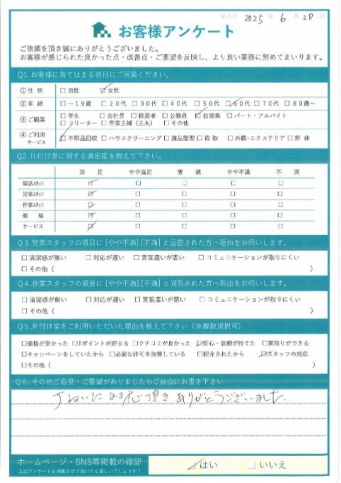 記入日 2025年 6月 2日
お客様アンケート
ご依頼を頂き誠にありがとうございました。
お客様が感じられた良かった点・改善点・ご要望を反映し、より良い業務に努めてまいります。
Q1.お客様に当てはまる項目にご回答ください。
①性 別 □男性 □女性
②年 齢 □~19歳 □20代 □30代 □40代 □50代 □60代 □70代 □80歳~
③ご職業 □学生 □会社員 □経営者 □公務員 □自営業 □パート・アルバイト
□フリーター □専業主婦(主夫) □その他
④ご利用サービス □不用品回収 □ハウスクリーニング □遺品整理 □買取 □外構・エクステリア □解体
Q2.片付け業に関する満足度を教えて下さい。
満足 やや満足 普通 やや不満 不満
電話対応 □ □ □ □ □
営業対応 □ □ □ □ □
作業対応 □ □ □ □ □
価格 □ □ □ □ □
サービス □ □ □ □ □
Q3.営業スタッフの項目に[やや不満][不満]と回答された方へ理由をお伺いします。
□清潔感が無い □対応が遅い □言葉遣いが悪い □コミュニケーションが取りにくい
□その他( )
Q4.作業スタッフの項目に[やや不満][不満]と回答された方へ理由をお伺いします。
□清潔感が無い □対応が遅い □言葉遣いが悪い □コミュニケーションが取りにくい
□その他( )
Q5.片付け堂をご利用いただいた理由を教えて下さい(※複数選択可)
□価格が安かった □Tポイントが貯まる □クチコミが良かった □安心・信頼が持てた □買取りができる
□キャンペーンをしていたから □必要な許可を取得している □紹介されたから □スタッフの対応
□その他( )
Q6.その他ご意見・ご要望がありましたらご自由にお書き下さい
ていねいに お応え頂き ありがとうございました。
ホームページ・SNS等掲載の確認
□はい □いいえ